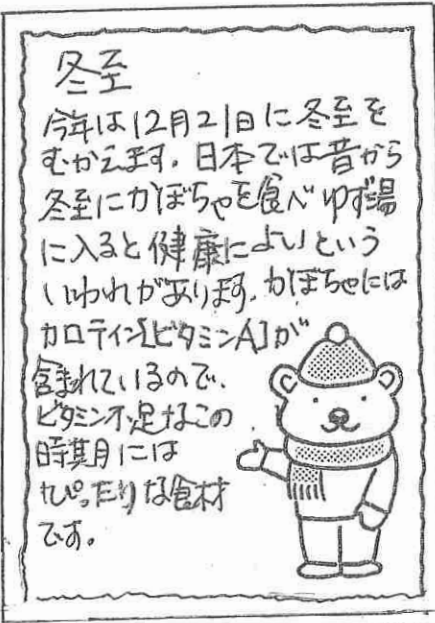 冬至
今年は12月21日に冬至を
むかえます。日本では昔から
冬至にかぼちゃを食べゆず湯
に入ると健康によいという
いわれがあります。かぼちゃには
カロティン[ビタミンA]が
含まれているので、
ビタミン不足なこの
時期には
ぴったりな食材
です。